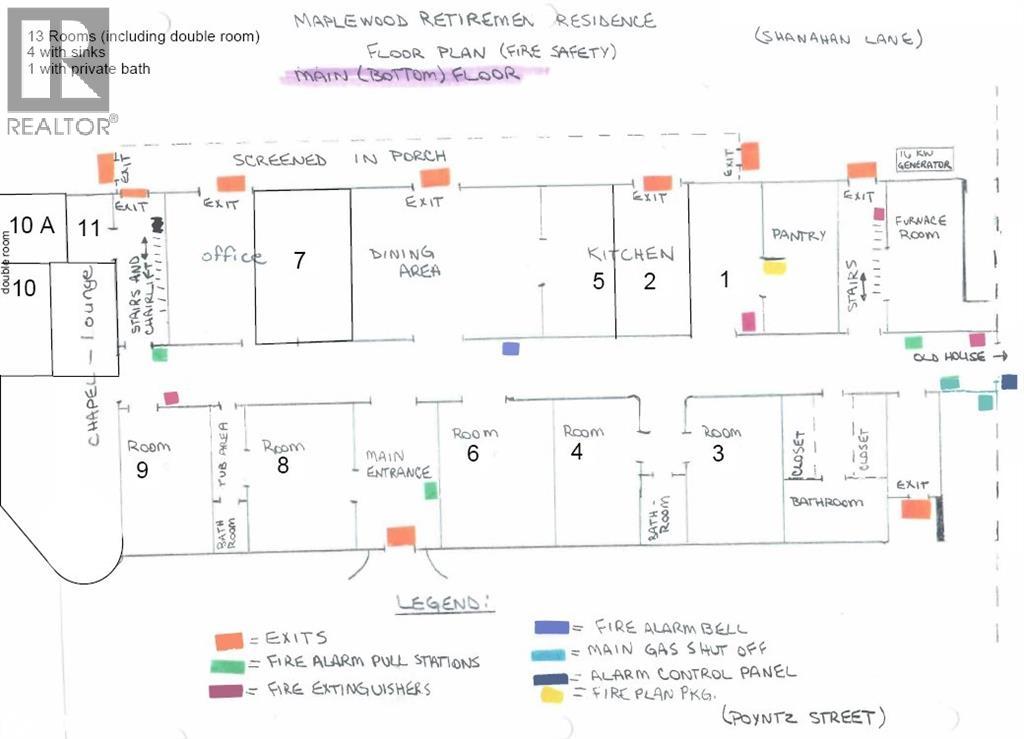 REALTOR®
13 Rooms (including double room)
4 with sinks
1 with private bath
MAPLEWOOD RETIREMEN RESIDENCE
FLOOR PLAN (FIRE SAFETY)
MAIN (BOTTOM) FLOOR
(SHANAHAN LANE)
SCREENED IN PORCH
EXIT
EXIT
EXIT
EXIT
EXIT
EXIT
EXIT
16 KW
GENERATOR
10 A
11
double room
10
STAIRS AND
CHAIRLIFT
office
7
DINING
AREA
KITCHEN
5
2
1
PANTRY
STAIRS
FURNACE
ROOM
CHAPEL - Lounge
OLD HOUSE →
Room
9
TUB AREA
BATH
ROOM
Room
8
MAIN
ENTRANCE
Room
6
Room
4
BATH-
ROOM
Room
3
CLOSET
CLOSET
BATHROOM
EXIT
LEGEND:
= EXITS
= FIRE ALARM PULL STATIONS
= FIRE EXTINGUISHERS
= FIRE ALARM BELL
= MAIN GAS SHUT OFF
= ALARM CONTROL PANEL
= FIRE PLAN PKG.
(POYNTZ STREET)